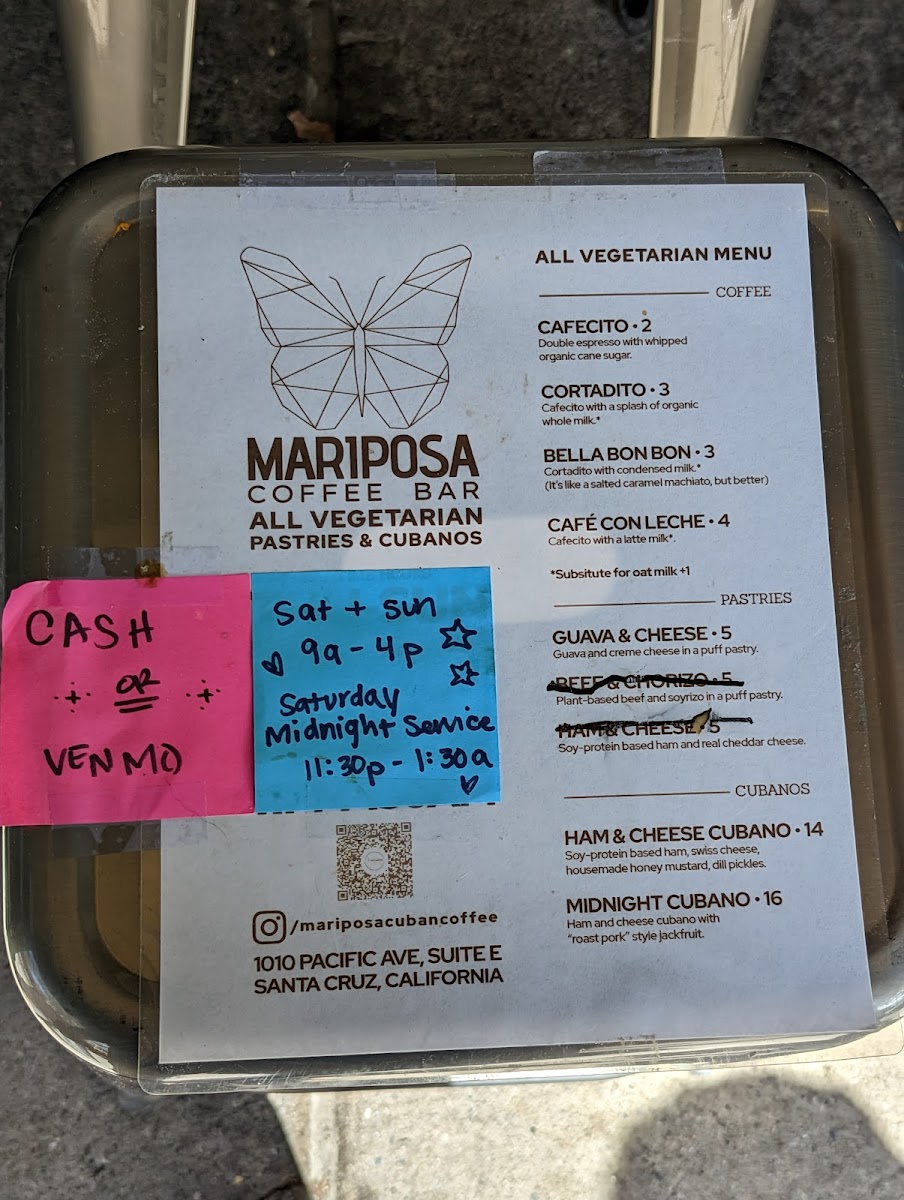 MARIPOSA
COFFEE BAR
ALL VEGETARIAN
PASTRIES & CUBANOS
CASH
OR
VENMO
Sat + sun
9a - 4p
Saturday
Midnight Service
11:30p - 1:30a
/mariposacubancoffee
1010 PACIFIC AVE, SUITE E
SANTA CRUZ, CALIFORNIA
ALL VEGETARIAN MENU
COFFEE
CAFECITO • 2
Double espresso with whipped
organic cane sugar.
CORTADITO • 3
Cafecito with a splash of organic
whole milk.*
BELLA BON BON • 3
Cortadito with condensed milk.*
(It's like a salted caramel machiato, but better)
CAFÉ CON LECHE • 4
Cafecito with a latte milk*.
*Subsitute for oat milk +1
PASTRIES
GUAVA & CHEESE • 5
Guava and creme cheese in a puff pastry.
BEEF & CHORIZO • 5
Plant-based beef and soyrizo in a puff pastry.
HAM & CHEESE • 5
Soy-protein based ham and real cheddar cheese.
CUBANOS
HAM & CHEESE CUBANO • 14
Soy-protein based ham, swiss cheese,
housemade honey mustard, dill pickles.
MIDNIGHT CUBANO • 16
Ham and cheese cubano with
"roast pork" style jackfruit.